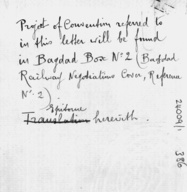 Projet of Convention referred to
in this letter will be found
in Bagdad Box No. 2 (Bagdad
Railway Negotiations Cover, Reference
No. 2).
Epitome
Translation herewith.
240091
386